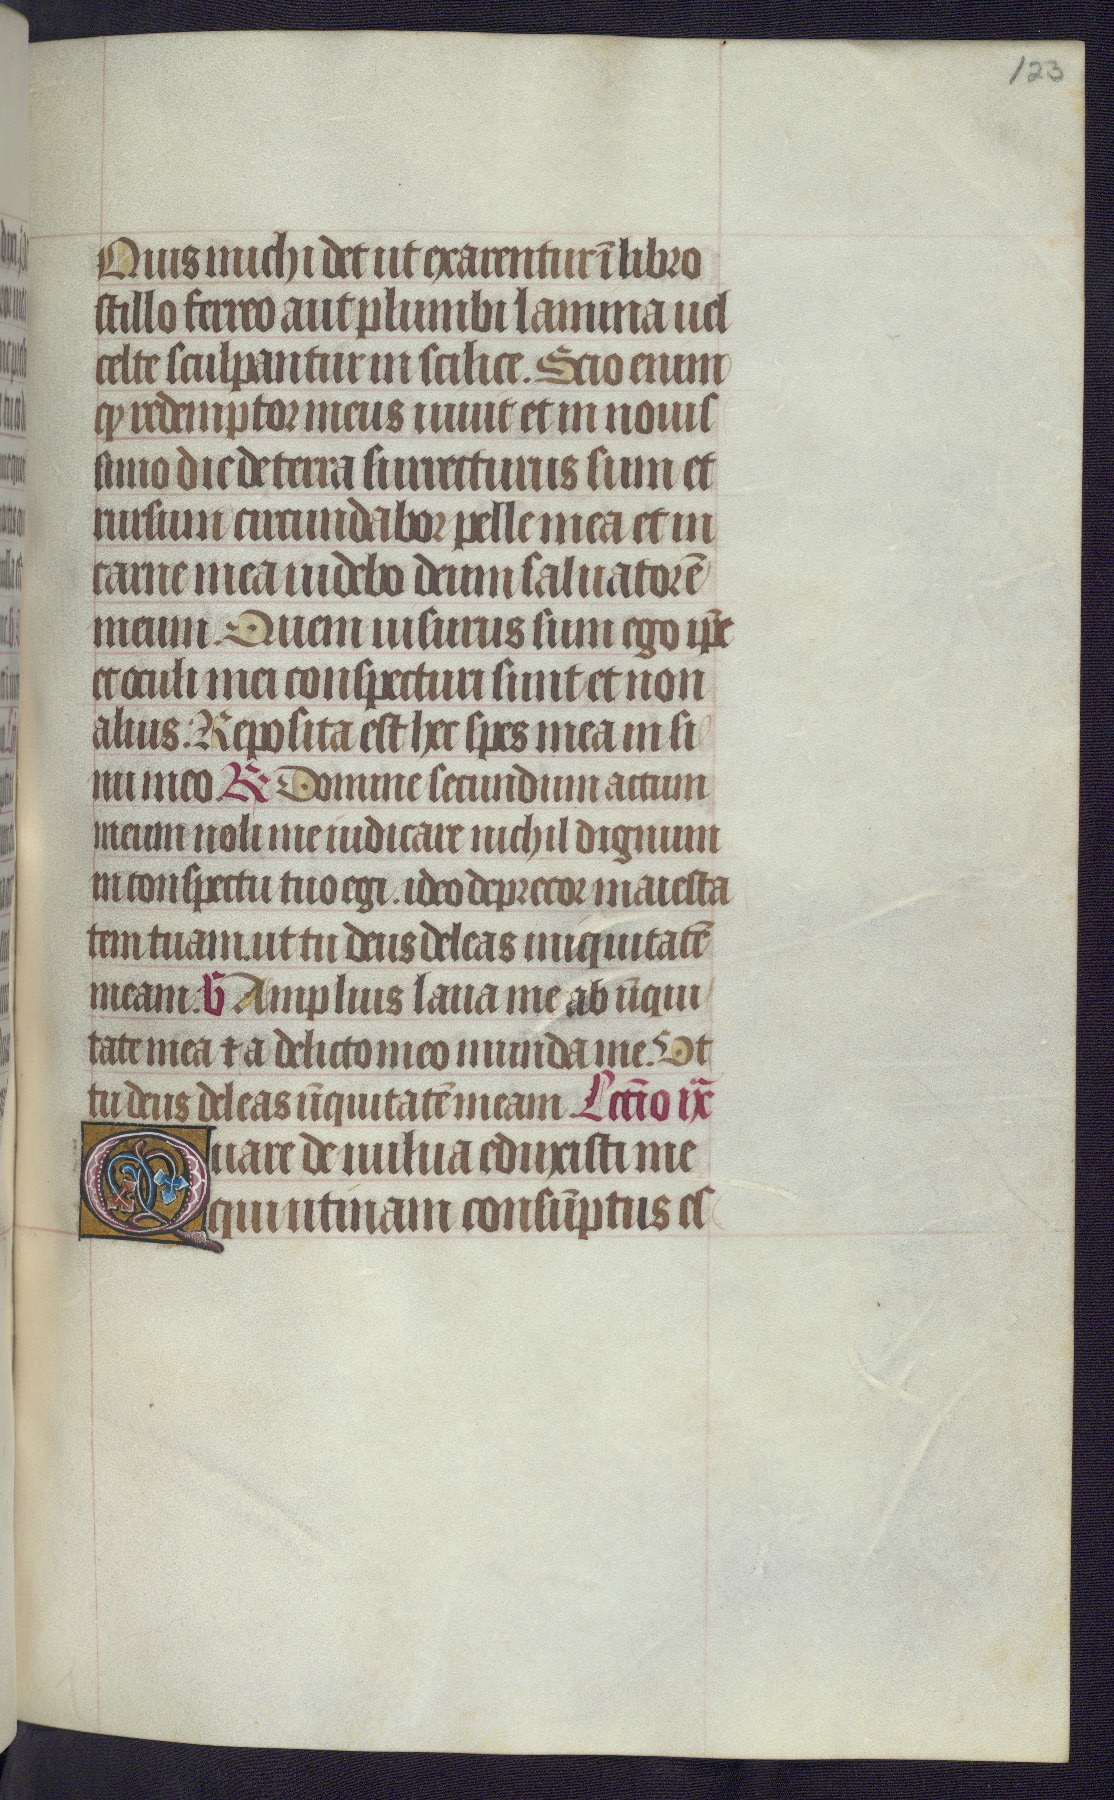 123
Quis michi det ut exarentur ī libro
stillo ferreo aut plumbi lamina uel
celte sculpantur in scilice. Scio enim
ꝙ redemptor meus uiuit et in nouis
simo die de terra surrecturus sum et
rursum circundabor pelle mea et in
carne mea uidebo deum saluatorē
meum. Quem uisurus sum ego ip̄e
et oculi mei conspecturi sunt et non
alius. Reposita est hec spes mea in si
nu meo. R Domine secundum actum
meum noli me iudicare nichil dignum
in conspectu tuo egi. ideo deprecor maiesta
tem tuam. ut tu deus deleas iniquitatē
meam. V Amplius laua me ab īiqui
tate mea ⁊ a delicto meo munda me. Ut
tu deus deleas īiquitatē meam. Lectio ix
Quare de uulua eduxisti me
qui utinam consūptus es